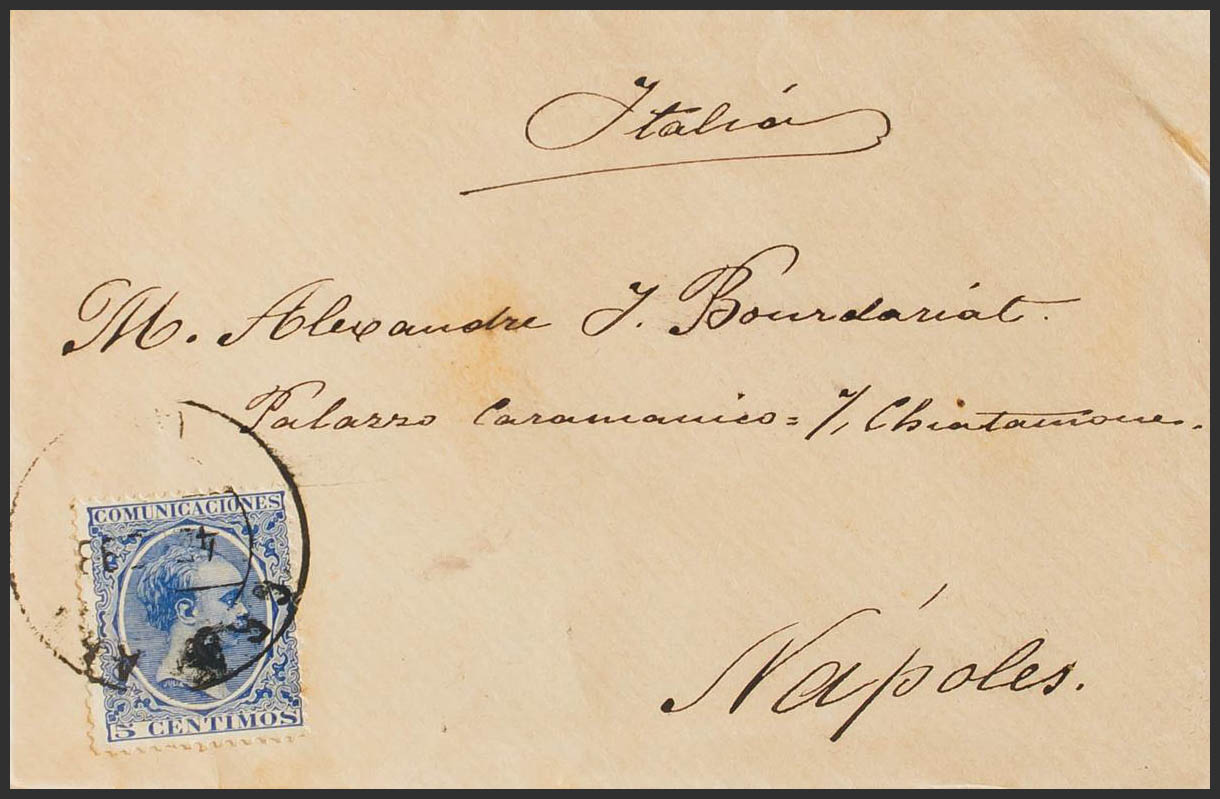 Italia
M. Alexandre J. Bourdariat.
Palazzo Caramanico = 7, Chiatamone.
COMUNICACIONES
5 CENTIMOS
Nápoles.